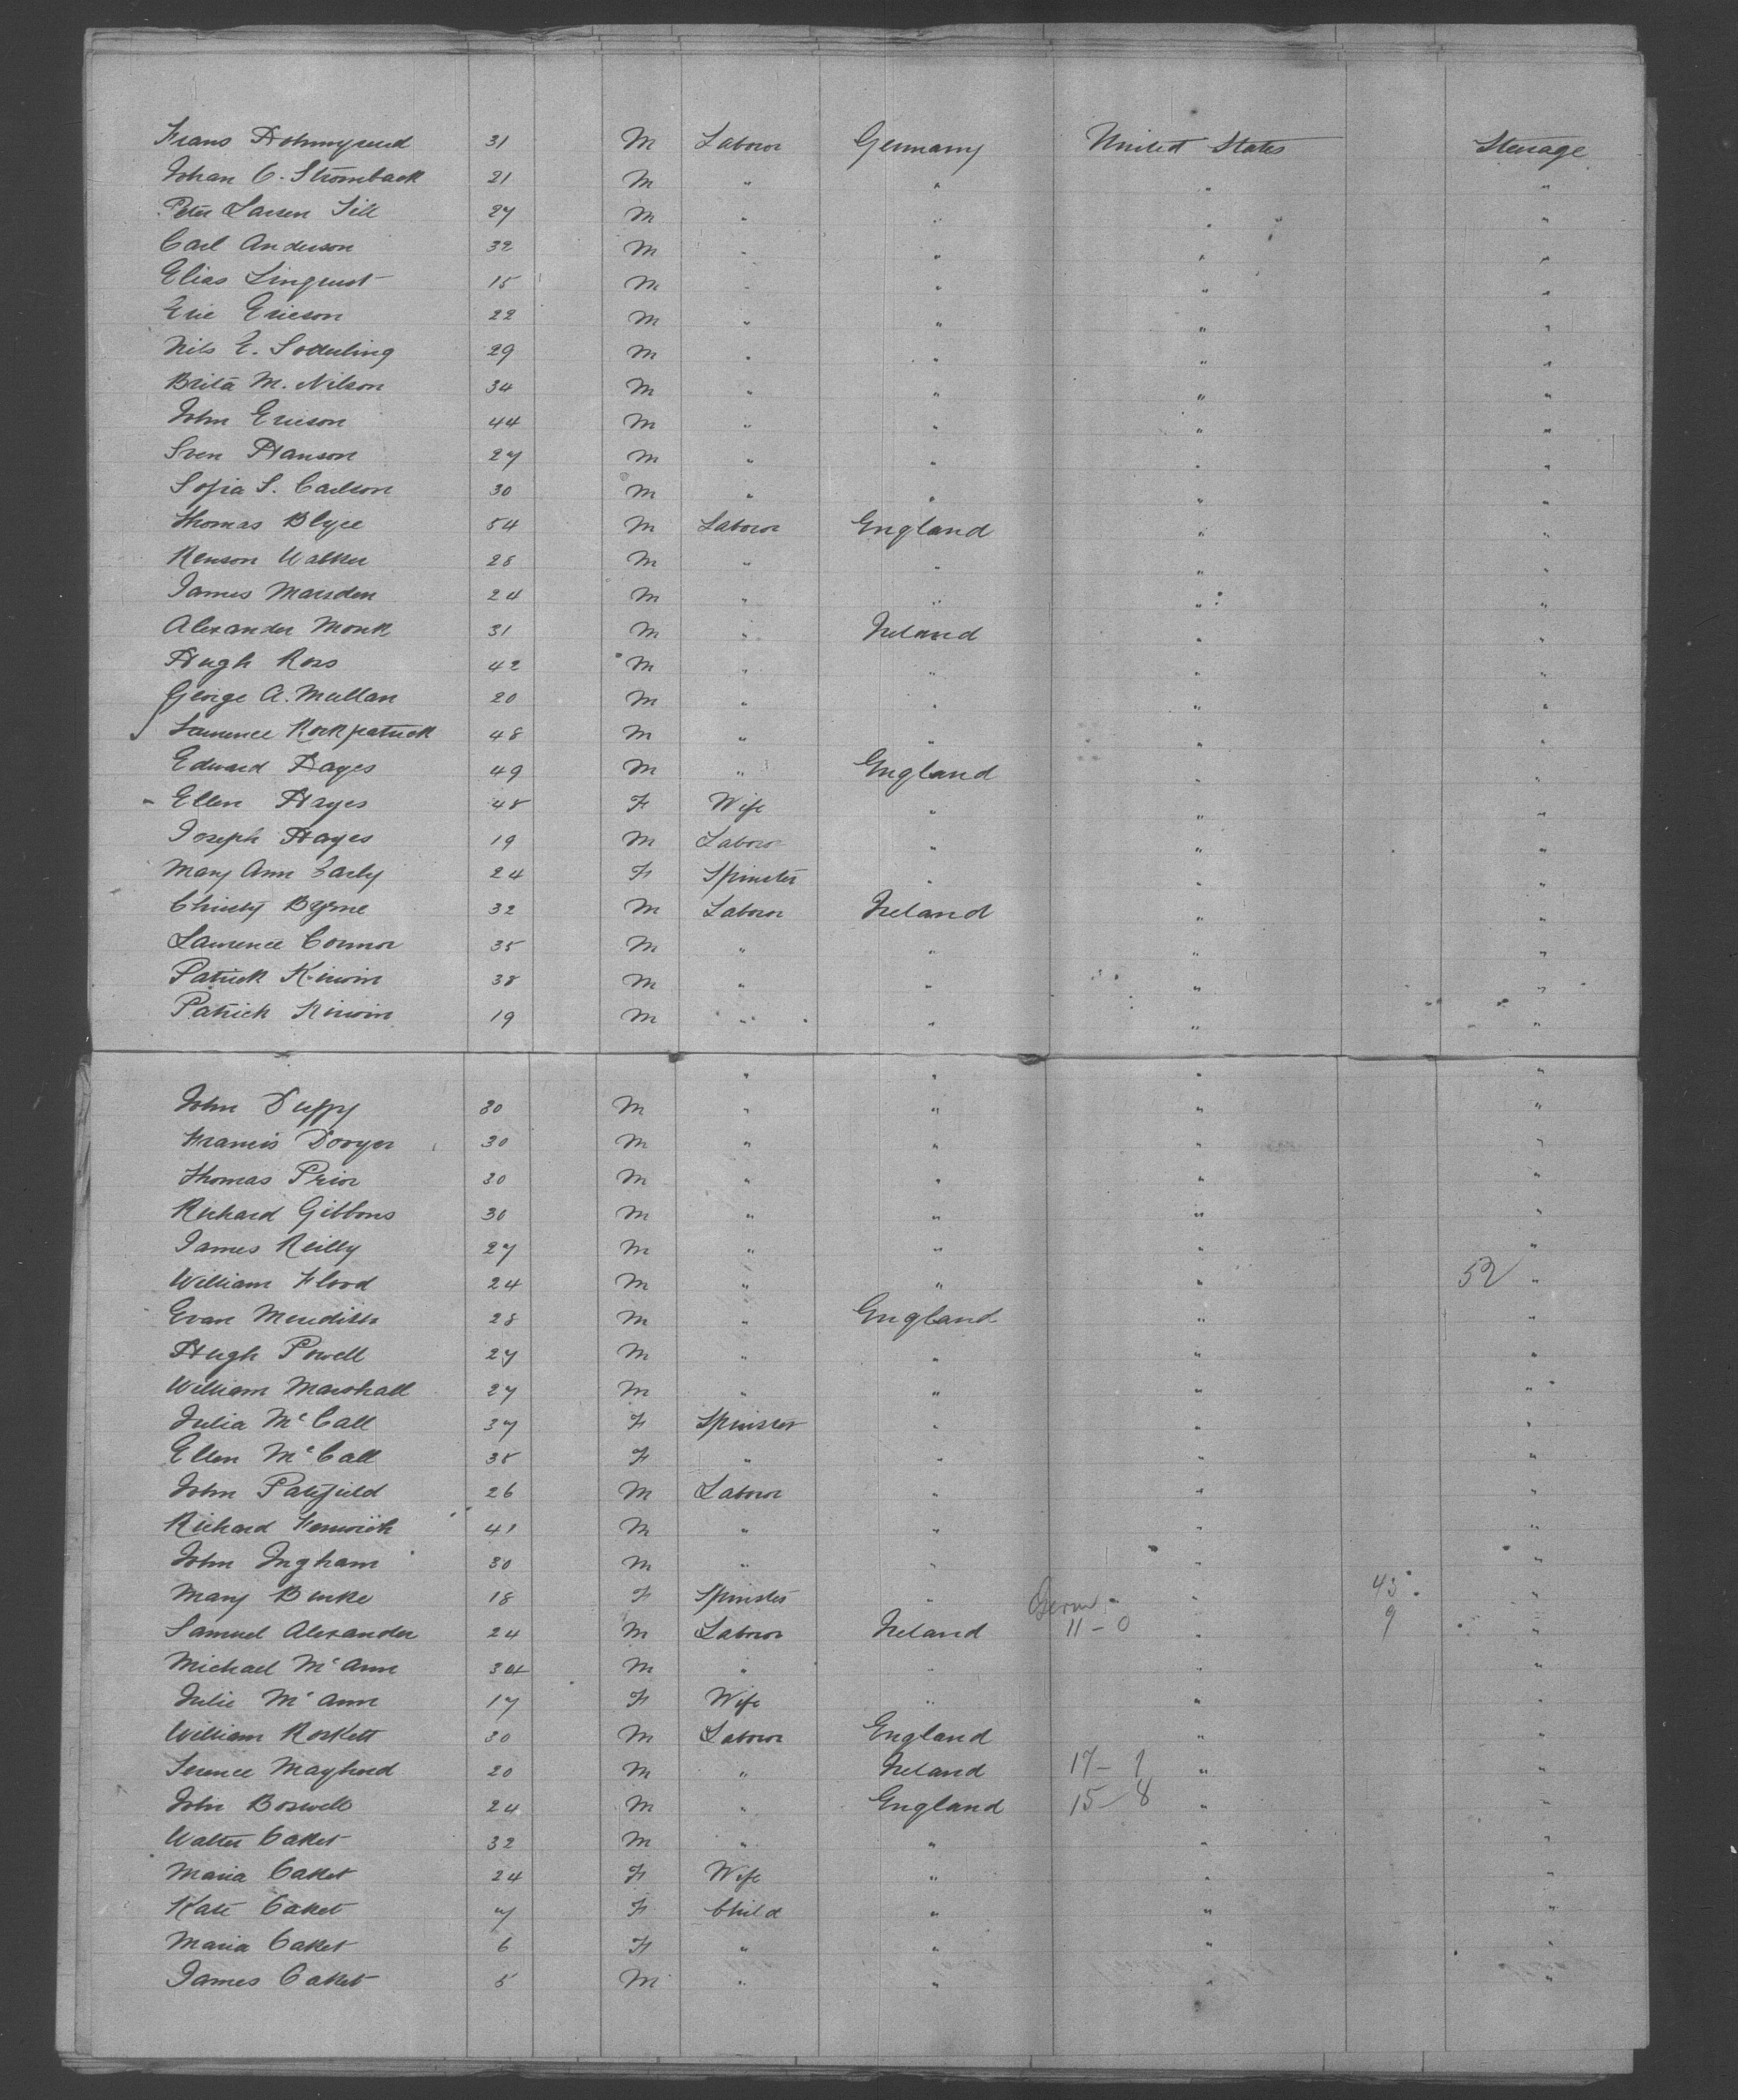 Frans 31 M Labour Germany United States Steerage
Johan C. Stromback 21 M " " " "
Peter Larsen Sill 27 M " " " "
Carl Anderson 32 M " " " "
Elias Linquist 15 M " " " "
Eric Ericson 22 M " " " "
Nils E. Soderling 29 M " " " "
Brita M. Nilson 34 M " " " "
John Ericson 44 M " " " "
Sven Hanson 27 M " " " "
Sofia S. Carlson 30 M " " " "
Thomas Blyce 54 M Labour England " "
Renson Walker 28 M " " " "
James Marsden 24 M " " " "
Alexander Monk 31 M " Ireland " "
Hugh Ross 42 M " " " "
George A. Mullan 20 M " " " "
Laurence Kirkpatrick 48 M " " " "
Edward Hayes 49 M " England " "
Ellen Hayes 48 F Wife " " "
Joseph Hayes 19 M Labour " " "
Mary Ann Early 24 F Spinster " " "
Christy Byrne 32 M Labour Ireland " "
Laurence Connor 35 M " " " "
Patrick Kirwin 38 M " " " "
Patrick Kirwin 19 M " " " "
" " " "
John Duffy 30 M " " " "
Francis Dooyer 30 M " " " "
Thomas Prior 30 M " " " "
Richard Gibbons 30 M " " " "
James Reilly 27 M " " " "
William Flood 24 M " " " 52 "
Evan Meredith 28 M " England " "
Hugh Powell 27 M " " " "
William Marshall 27 M " " " "
Julia McCall 37 F Spinster " " "
Ellen McCall 35 F " " " "
John Patefield 26 M Labour " " "
Richard Fenwick 41 M " " " "
John Ingham 30 M " " " "
Mary Burke 18 F Spinster " " 43 "
Samuel Alexander 24 M Labour Ireland 11-0 " 9 "
Michael McAnn 34 M " " " "
Julie McAnn 17 F Wife " " "
William Roskett 30 M Labour England " "
Terence Mayherd 20 M " Ireland 17-1 " "
John Boswell 24 M " England 15-8 " "
Walter Caket 32 M " " " "
Maria Caket 24 F Wife " " "
Kate Caket 7 F Child " " "
Maria Caket 6 F " " " "
James Caket 5 M " " " "